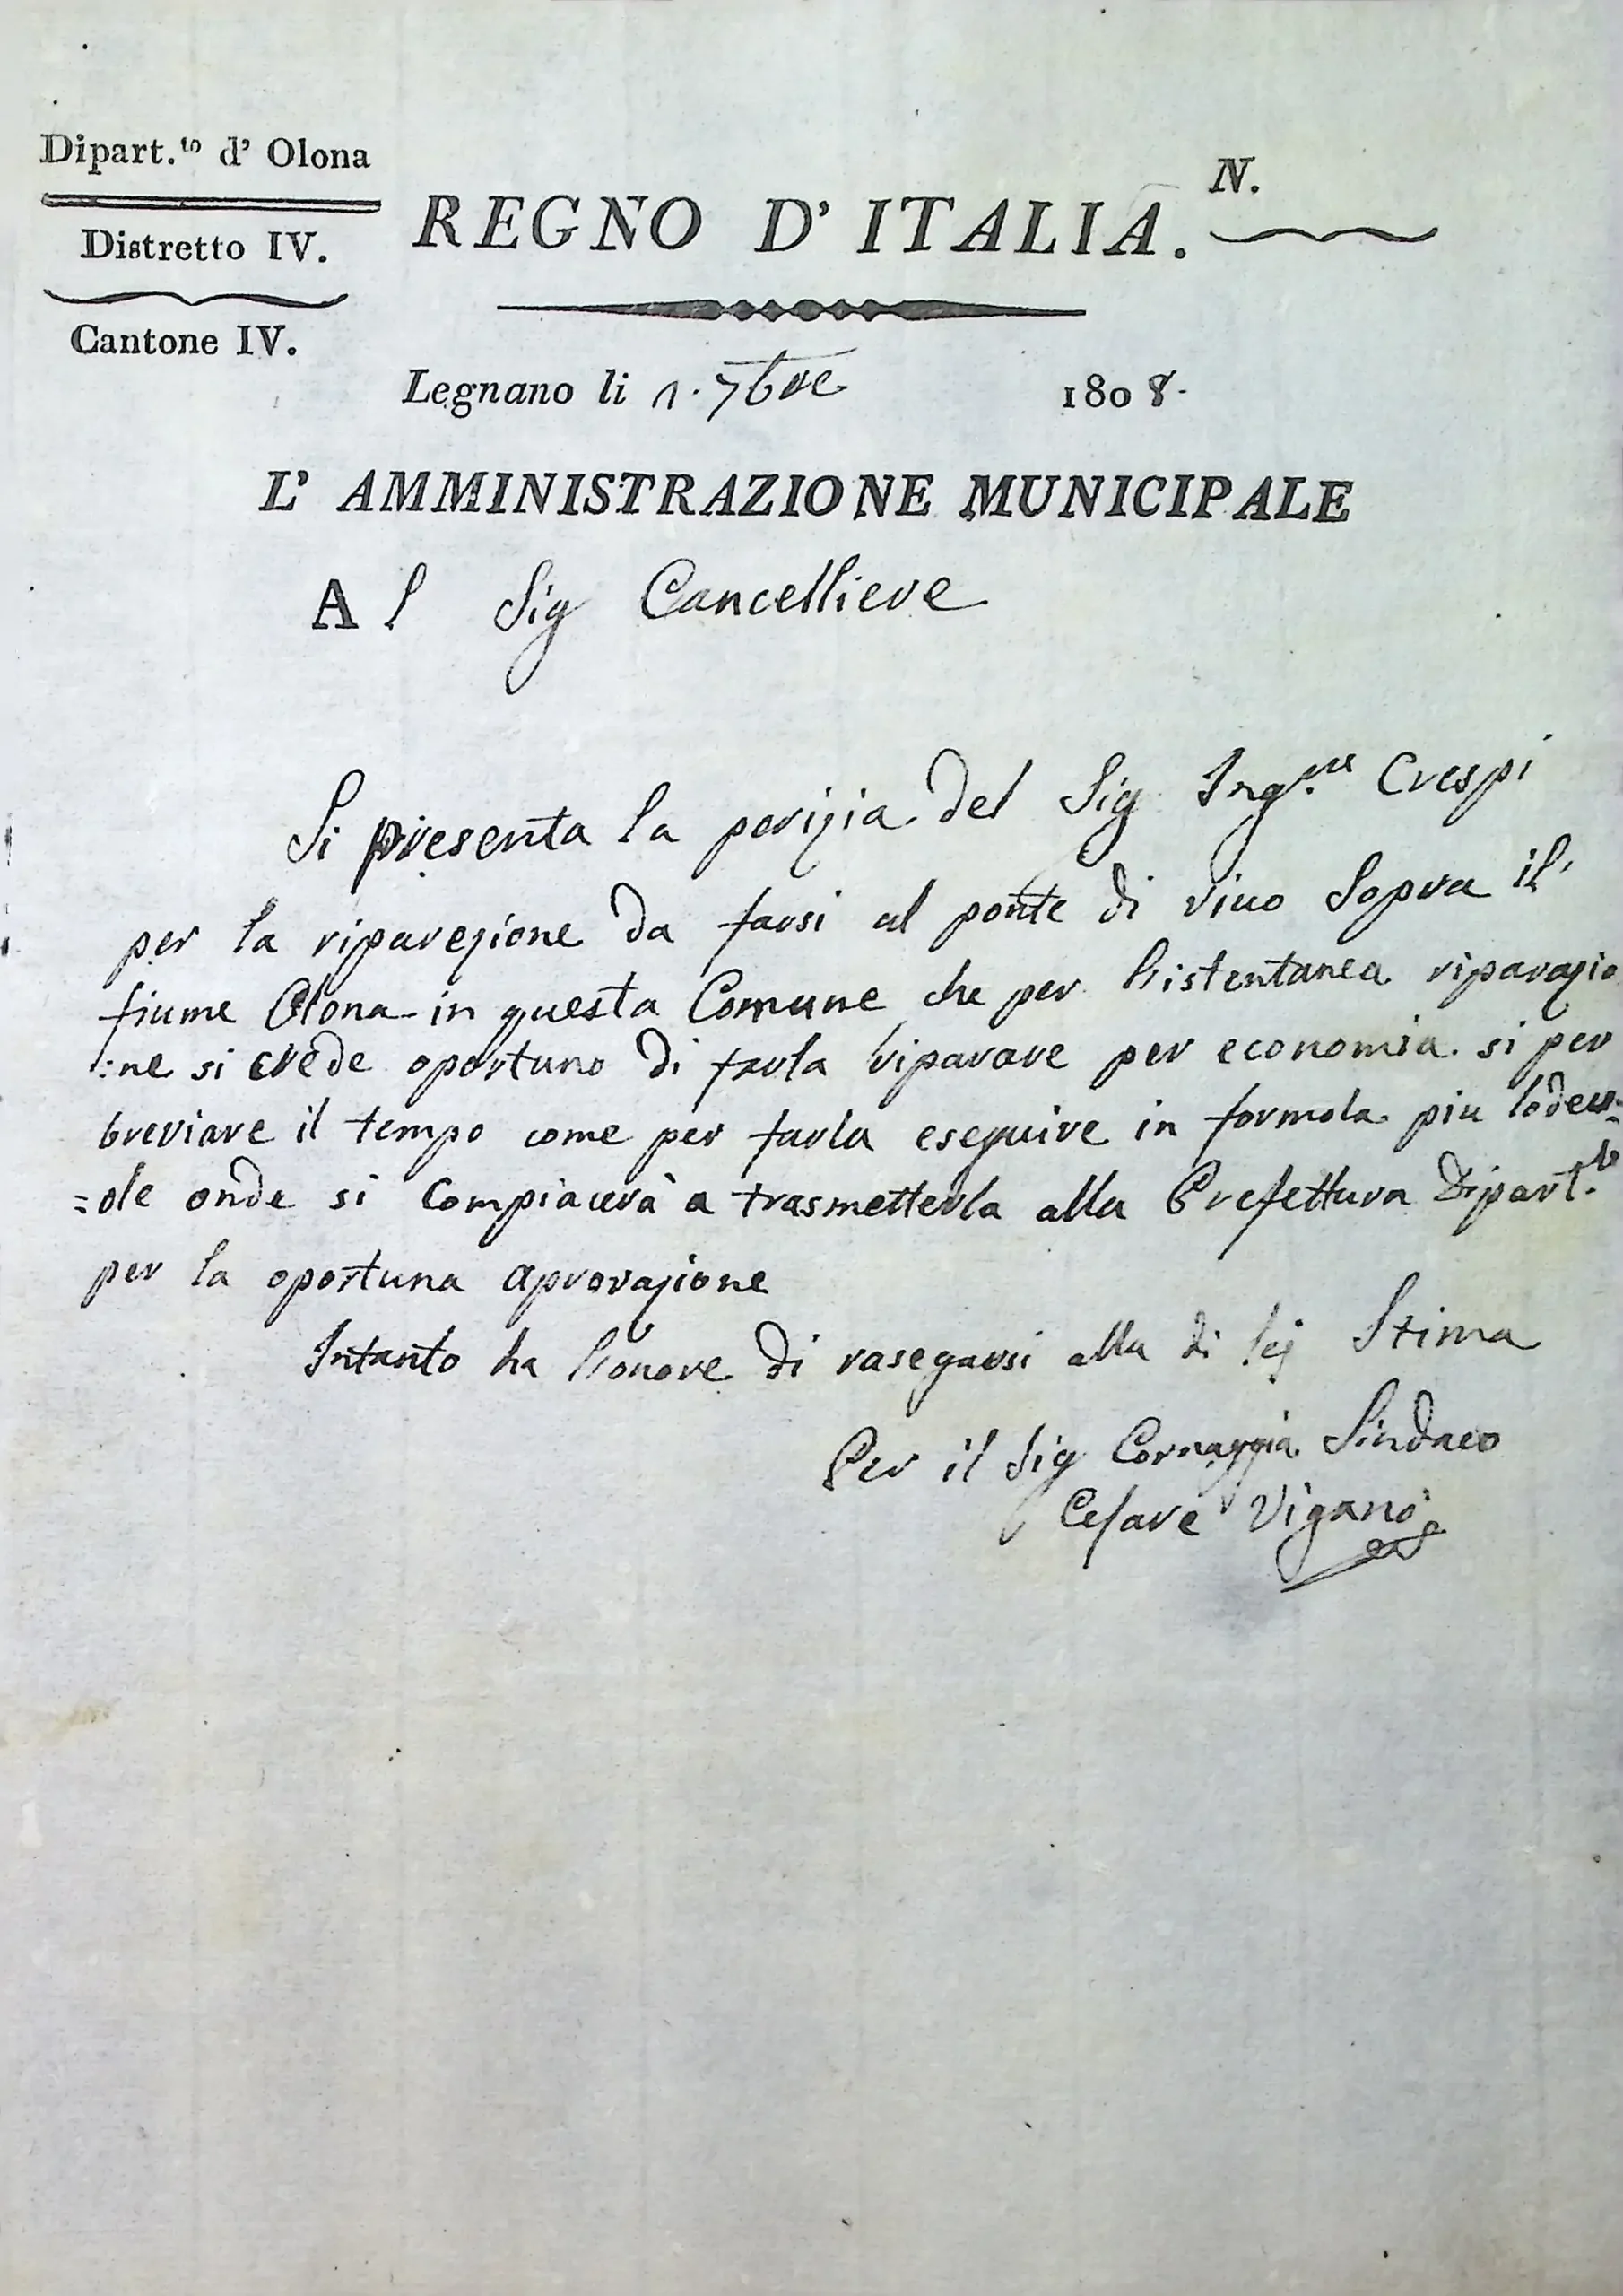 Dipart.to d' Olona
Distretto IV.
Cantone IV.
REGNO D' ITALIA.
N.
Legnano li 1. 7bre 1808.
L' AMMINISTRAZIONE MUNICIPALE
Al Sig Cancelliere
Si presenta la perizia del Sig Ing.re Crespi
per la riparezione da farsi al ponte di vivo Sopra il
fiume Olona in questa Comune che per l'istentanea riparazio
:ne si crede oportuno di farla riparare per economia. si per
breviare il tempo come per farla eseguire in formola piu lodev=
=ole onde si Compiacerà a trasmetterla alla Prefettura Dipart.le
per la oportuna aprovazione
Intanto ha l'onore di rasegarsi alla di lej Stima
Per il Sig Cornaggia Sindaco
Cesare Viganò